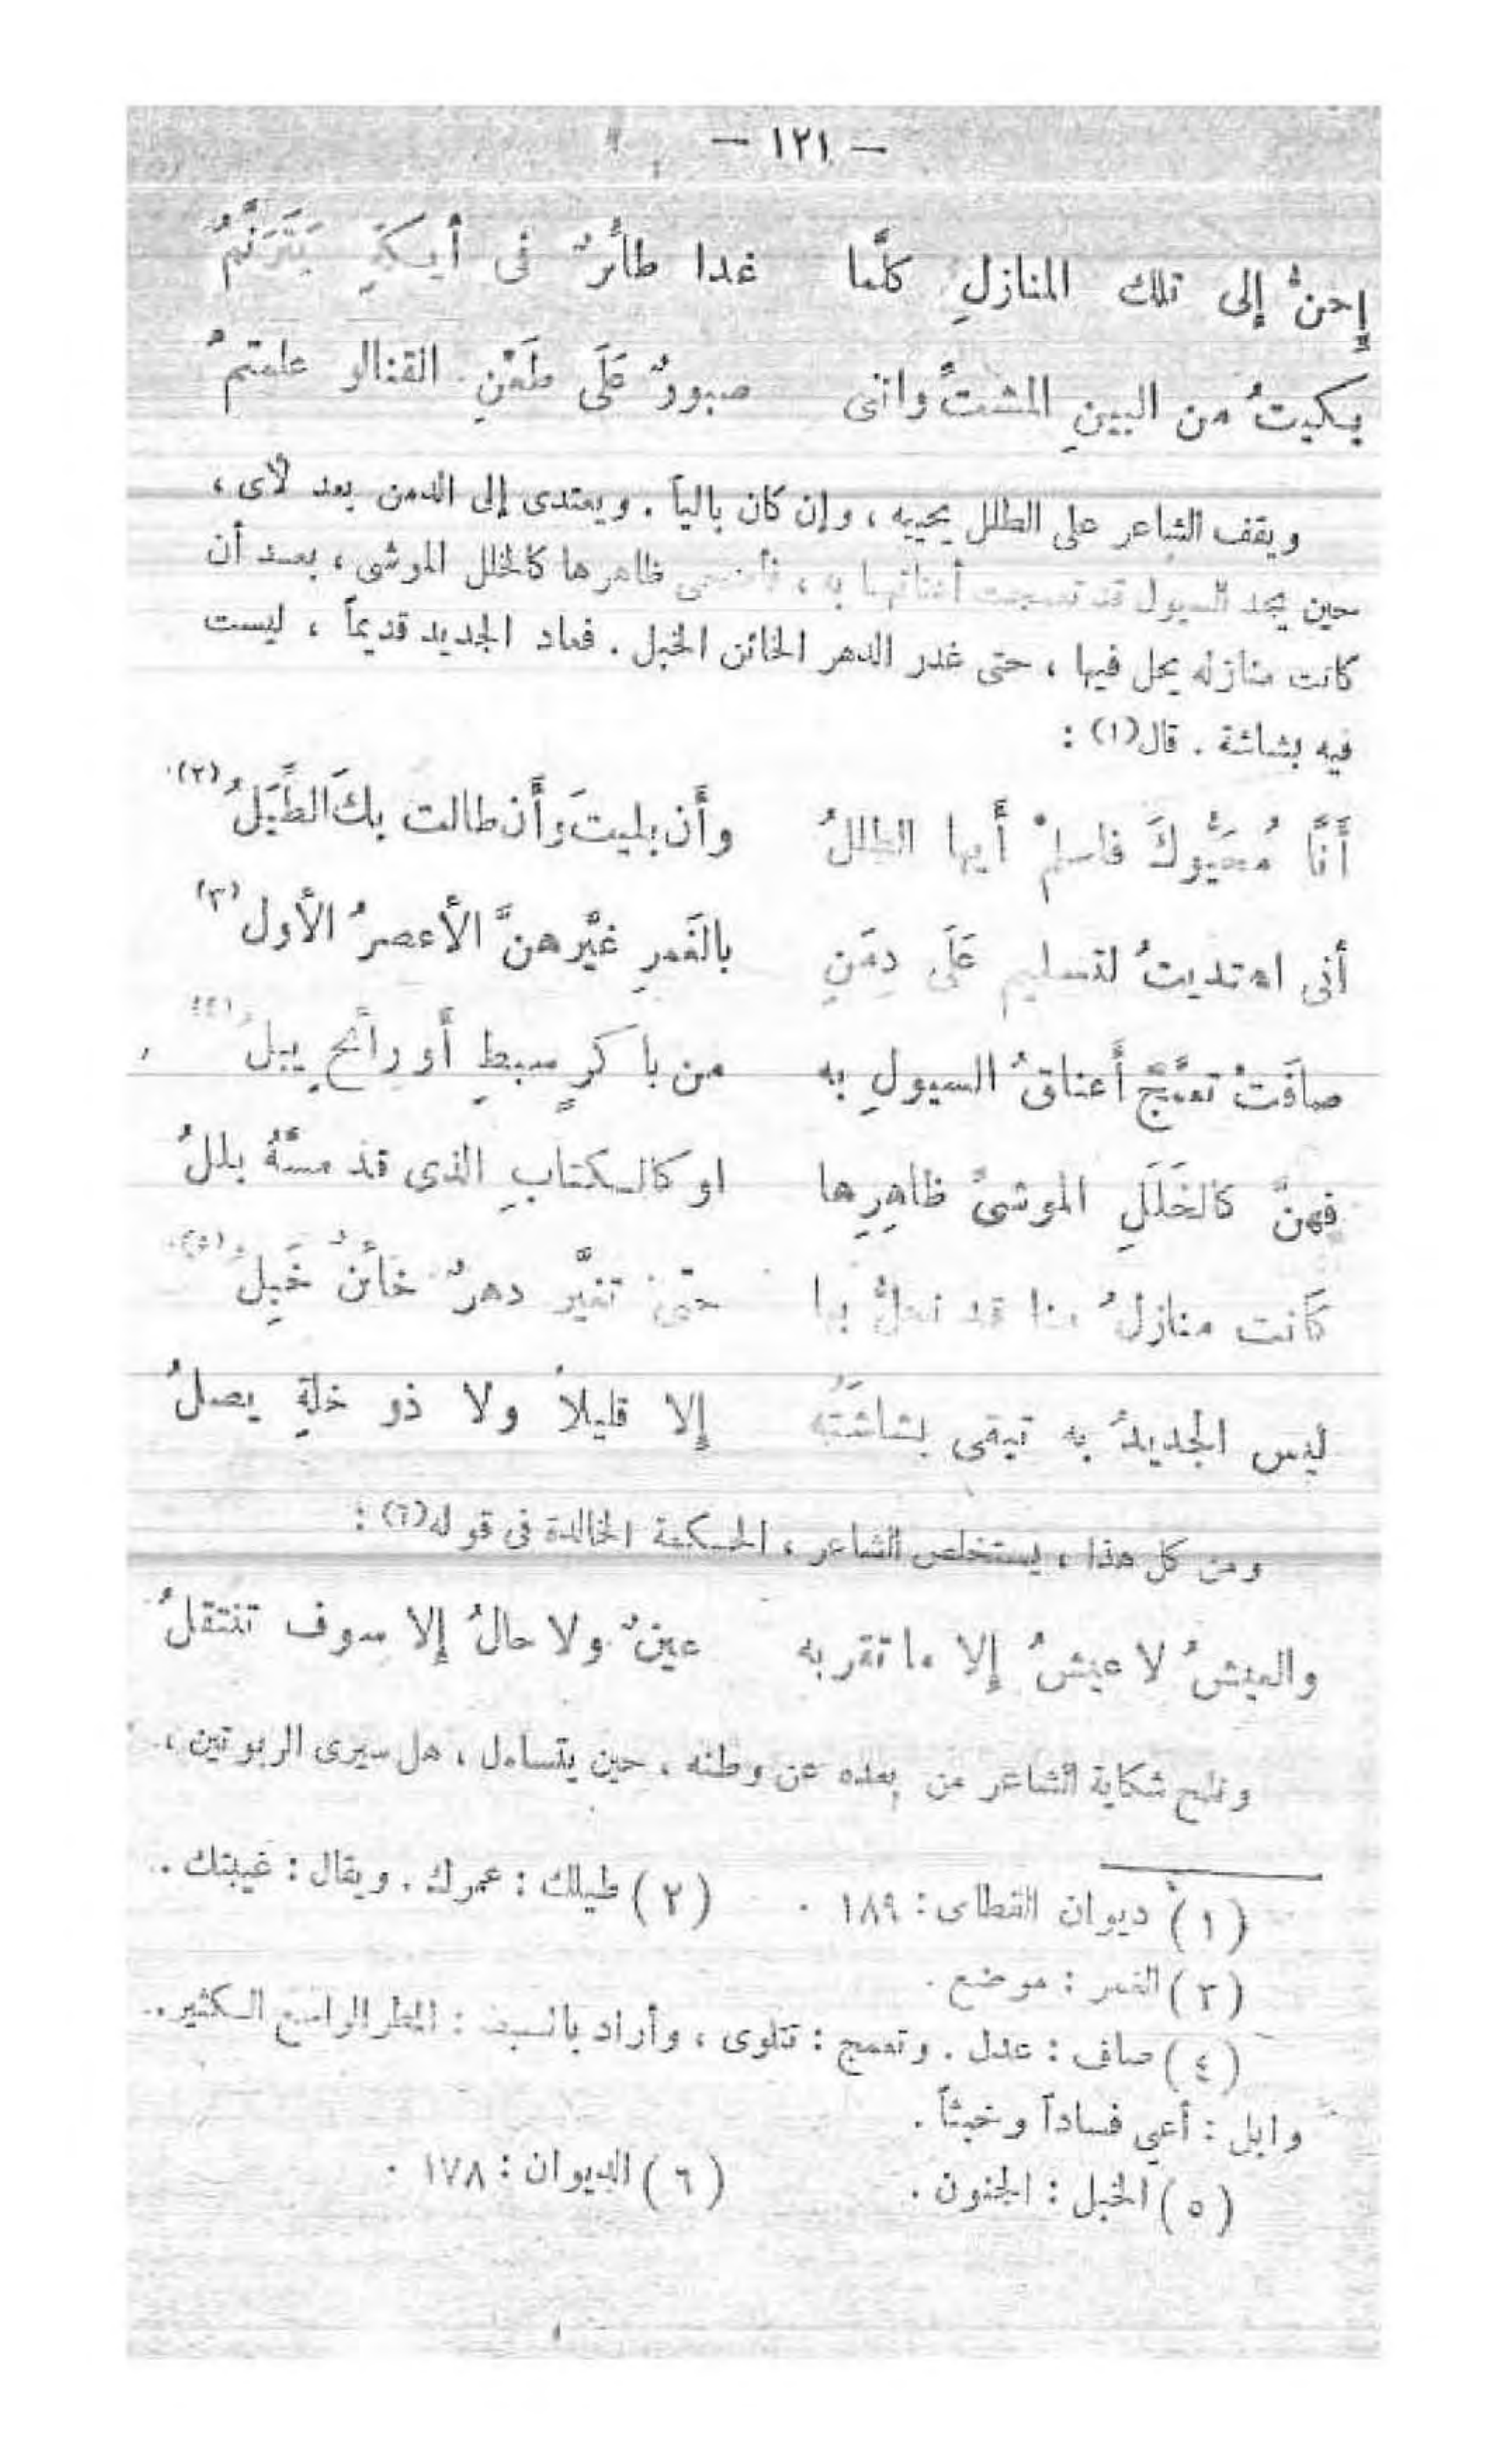 — ١٢١ —
إحنُّ إلى تلك المنازلِ كلَّما غدا طائرٌ فى أيكةٍ يَتَرَنَّمُ
بكيتُ من البينِ المشتِّ وإنى صبورٌ عَلَى طَعْنِ القنالو علمتمُ
ويقف الشاعر على الطلل يحييه ، وإن كان بالياً . ويهتدى إلى الدمن بعد لأى ،
حين يجد السيول قد تعمجت أعناقها به ، فأضحى ظاهرها كالخلل الموشى ، بعد أن
كانت منازله يحل فيها ، حتى غدر الدهر الخائن الخبل . فعاد الجديد قديماً ، ليست
فيه بشاشة . قال (١) :
أَنَّا مُحَيُّوكَ فاسلمْ أَيها الطللُ وأَن بليتَ وأَن طالت بكَ الطِّيَلُ (٢)
أنى اهتديتُ لتسليمٍ عَلَى دِمَنٍ بالغَمرِ غيَّرهنَّ الأعصرُ الأول (٣)
صافَتْ تعمَّجُ أَعناقُ السيولِ به من باكرٍ سبطٍ أَو رائحٍ يبلُ (٤)
فهنَّ كالخَلَلِ الموشىِّ ظاهِرِها او كالكتابِ الذى قد مسَّهُ بللُ
كَانت منازلُ منا قد نحلُّ بها حتَّى تغيَّر دهرٌ خائنٌ خَبِلُ (٥)
ليس الجديدُ به تبقى بشاشَتُه إلا قليلاً ولا ذو خلةٍ يصلُ
ومن كل هذا ، يستخلص الشاعر ، الحكمة الخالدة فى قوله (٦) :
والعيشُ لا عيشُ إلا ما تقر به عينٌ ولا حالُ إلا سوف تنتقلُ
وتلح شكاية الشاعر من بعده عن وطنه ، حين يتساءل ، هل سيرى الربوتين ،
(١) ديوان القطاى : ١٨٩ . (٢) طيلك : عمرك . ويقال : غيبتك .
(٣) الغمر : موضع .
(٤) صاف : عدل . وتعمج : تتلوى ، وأراد بالسبط : المطر الواسع الكثير .
وابل : أعي فساداً وخبثاً .
(٥) الخبل : الجنون . (٦) الديوان : ١٧٨ .